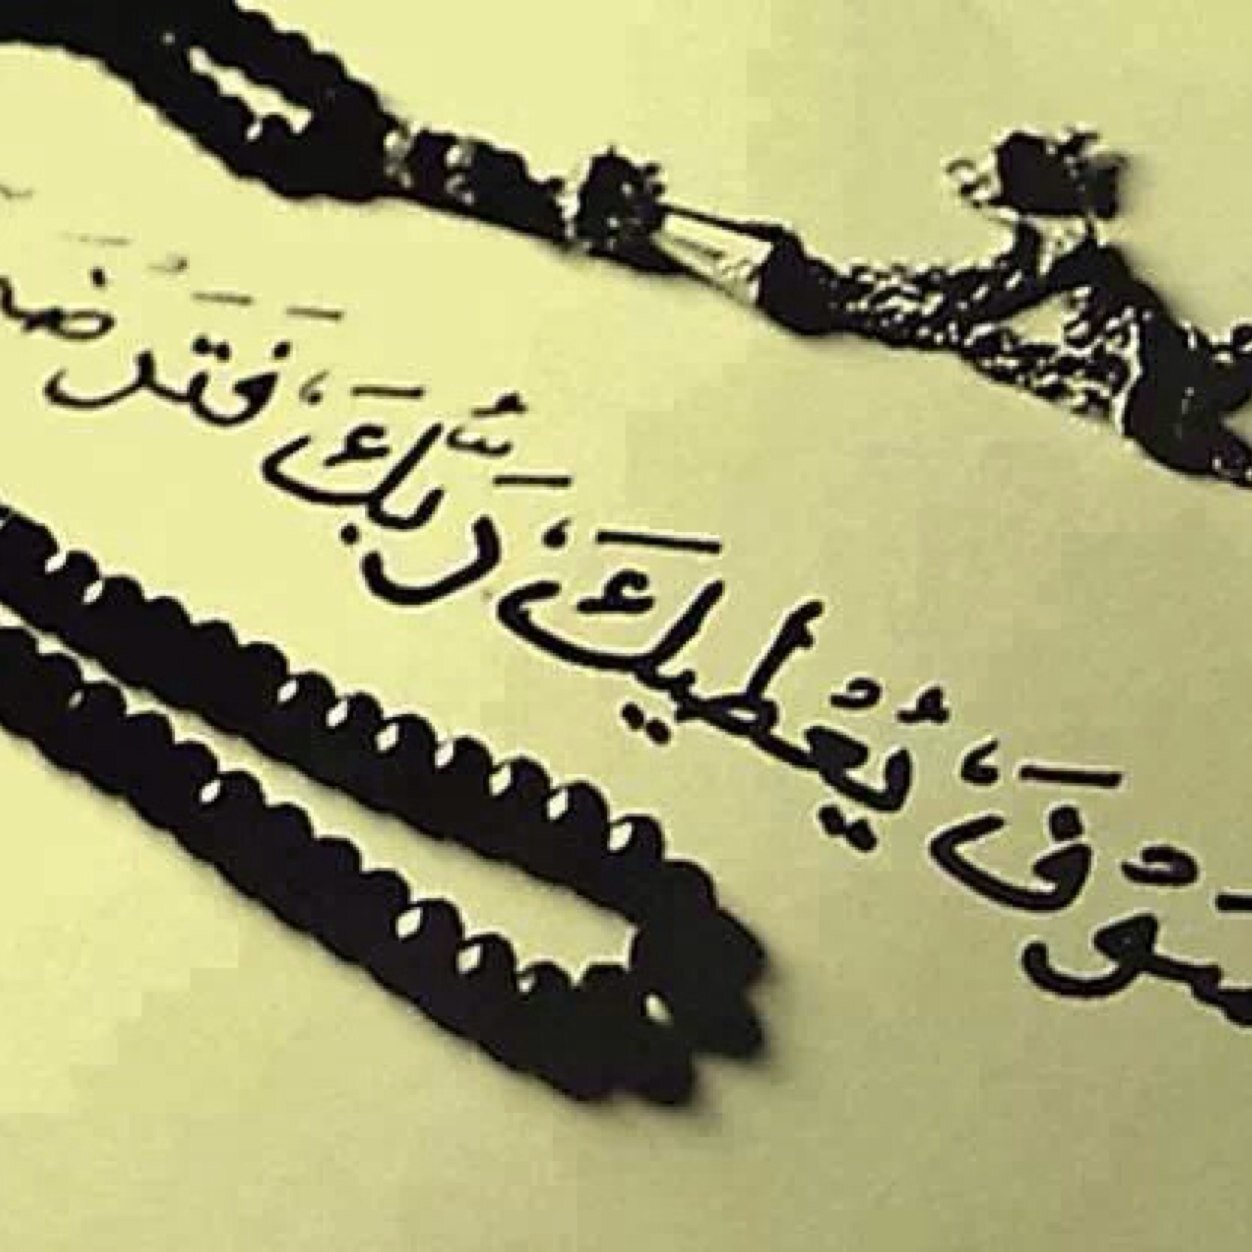 سَوْفَ يُعْطيكَ رَبُّكَ فَتَرْضَ